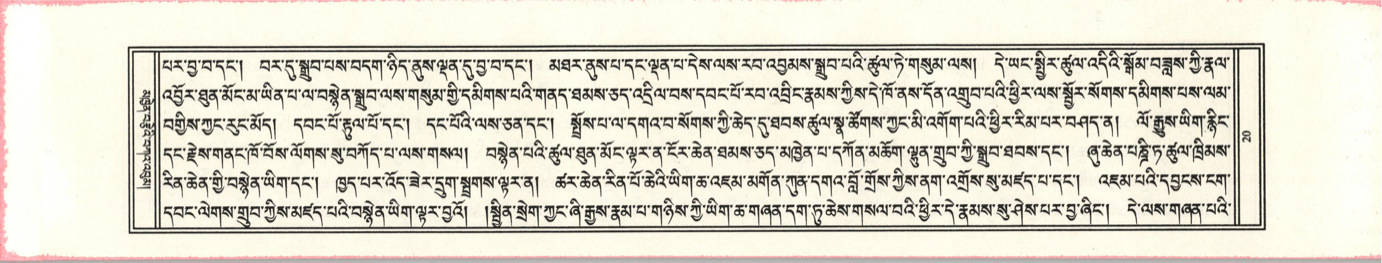 པར་བྱ་བ་དང་། བར་དུ་སྒྲུབ་པས་བདག་ཉིད་ནུས་ལྡན་དུ་བྱ་བ་དང་། མཐར་ནུས་པ་དང་ལྡན་པ་དེས་ལས་རབ་འབྱམས་སྒྲུབ་པའི་ཚུལ་ཏེ་གསུམ་ལས། དེ་ཡང་སྤྱིར་ཚུལ་འདིའི་སྒོམ་བཟླས་ཀྱི་རྣལ་
འབྱོར་ཐུན་མོང་མ་ཡིན་པ་ལ་བསྙེན་སྒྲུབ་ལས་གསུམ་གྱི་དམིགས་པའི་གནད་ཐམས་ཅད་འདྲིལ་བས་དབང་པོ་རབ་འབྲིང་རྣམས་ཀྱིས་དེ་ཁོ་ནས་དོན་འགྲུབ་པའི་ཕྱིར་ལས་སྦྱོར་སོགས་དམིགས་པས་ལམ་
བགྱིས་ཀྱང་རུང་མོད། དབང་པོ་རྟུལ་པོ་དང་། དང་པོའི་ལས་ཅན་དང་། སྤྲོས་པ་ལ་དགའ་བ་སོགས་ཀྱི་ཆེད་དུ་ཐབས་ཚུལ་སྣ་ཚོགས་ཀྱང་མི་འགོག་པའི་ཕྱིར་རིམ་པར་བཤད་ན། ལོ་རྒྱུས་ཡིག་རྙིང་
དང་རྗེས་གནང་ཁོ་བོས་ལོགས་སུ་བཀོད་པ་ལས་གསལ། བསྙེན་པའི་ཚུལ་ཐུན་མོང་ལྟར་ན་ངོར་ཆེན་ཐམས་ཅད་མཁྱེན་པ་དཀོན་མཆོག་ལྷུན་གྲུབ་ཀྱི་སྒྲུབ་ཐབས་དང་། ཞུ་ཆེན་པཎྜི་ཏ་ཚུལ་ཁྲིམས་
རིན་ཆེན་གྱི་བསྙེན་ཡིག་དང་། ཁྱད་པར་འོད་ཟེར་དྲུག་སྤྲགས་ལྟར་ན། ཚར་ཆེན་རིན་པོ་ཆེའི་ཡིག་ཆ་འཇམ་མགོན་ཀུན་དགའ་བློ་གྲོས་ཀྱིས་ནག་འགྲོས་སུ་མཛད་པ་དང་། འཇམ་པའི་དབྱངས་ངག་
དབང་ལེགས་གྲུབ་ཀྱིས་མཛད་པའི་བསྙེན་ཡིག་ལྟར་བྱའོ། །སྦྱིན་སྲེག་ཀྱང་ཞི་རྒྱས་རྣམ་པ་གཉིས་ཀྱི་ཡིག་ཆ་གཞན་དག་ཏུ་ཆེས་གསལ་བའི་ཕྱིར་དེ་རྣམས་སུ་ཤེས་པར་བྱ་ཞིང་། དེ་ལས་གཞན་པའི་
20